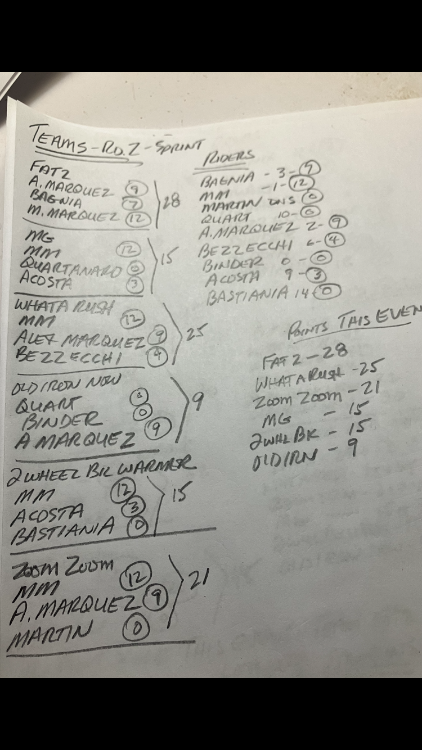 TEAMS - RD. 2 - SPRINT
FAT2
A. MARQUEZ 9
BAGNIA 7
M. MARQUEZ 12
28
MG
MM 12
QUARTANARO 0
ACOSTA 3
15
WHATA RUSH
MM 12
ALEX MARQUEZ 9
BEZZECCHI 4
25
OLD IRON NOW
QUART 0
BINDER 0
A MARQUEZ 9
9
2 WHEEL BK WARMER
MM 12
ACOSTA 3
BASTIANIA 0
15
ZOOM ZOOM
MM 12
A. MARQUEZ 9
MARTIN 0
21
RIDERS
BAGNIA - 3 - 7
MM - 1 - 12
MARTIN DNS 0
QUART 10 - 0
A. MARQUEZ 2 - 9
BEZZECCHI 6 - 4
BINDER 0 - 0
ACOSTA 9 - 3
BASTIANIA 14 - 0
POINTS THIS EVEN
FAT 2 - 28
WHATA RUSH - 25
ZOOM ZOOM - 21
MG - 15
2 WHL BK - 15
OLD IRN - 9